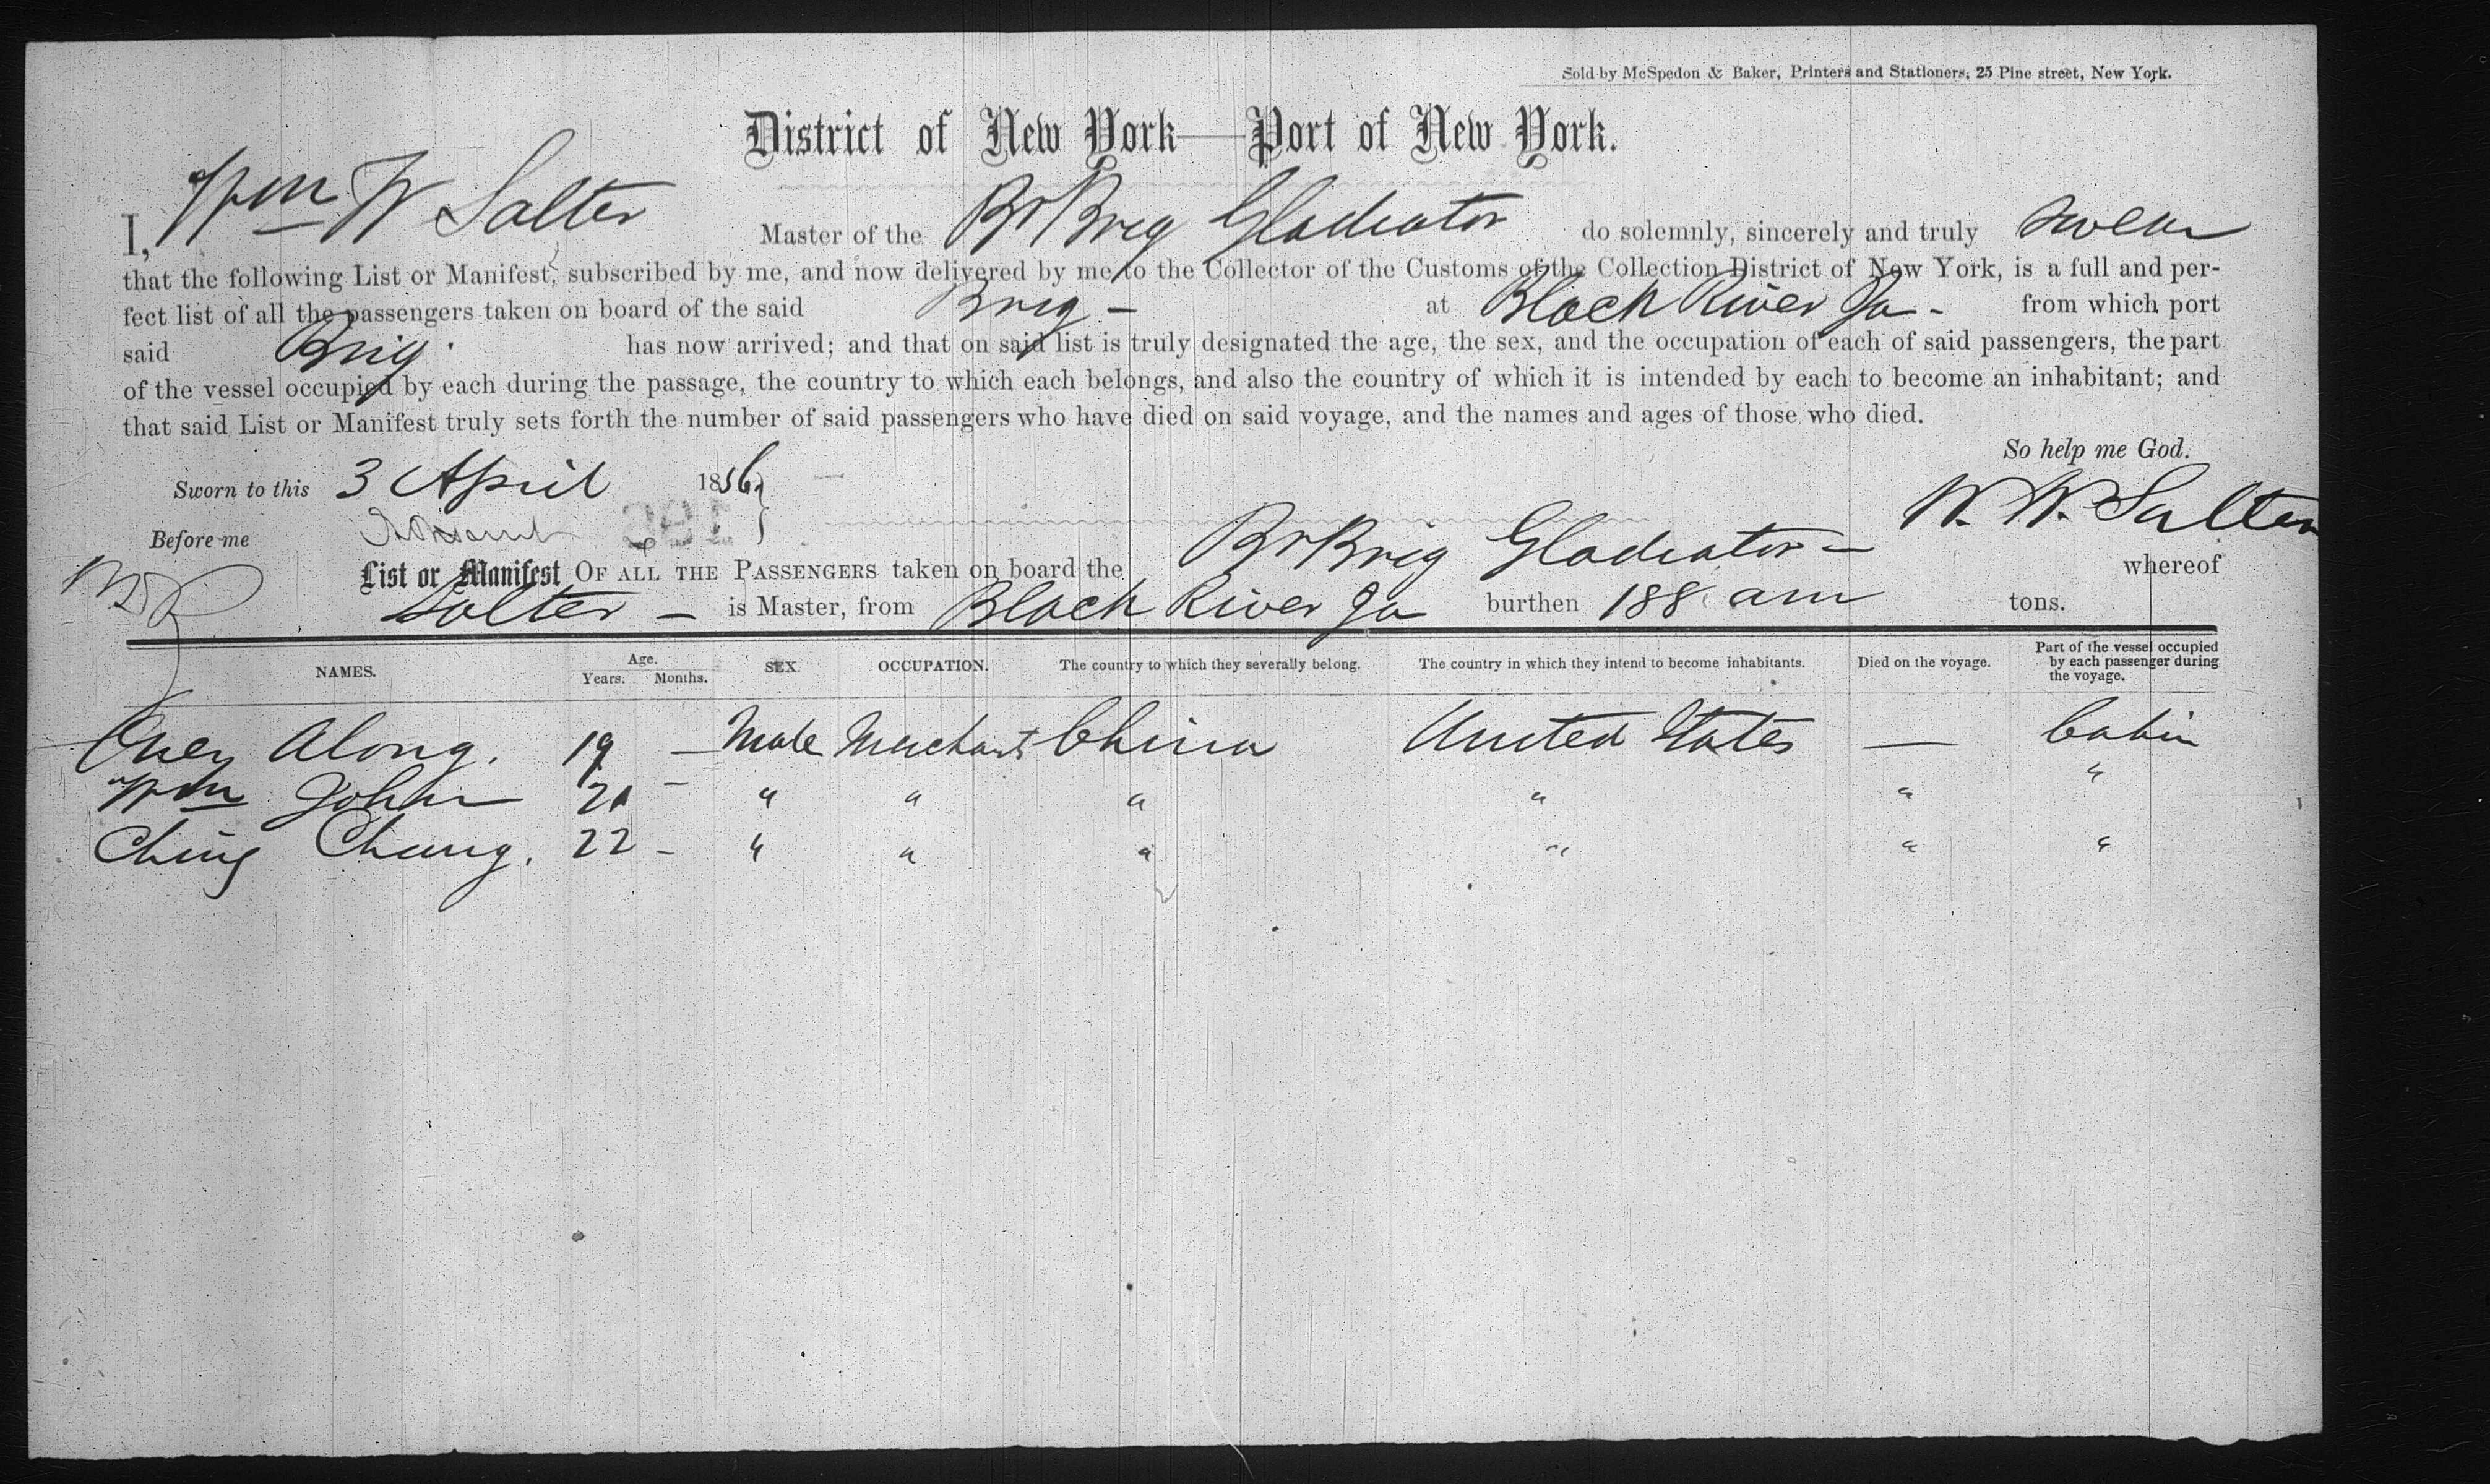 Sold by McSpedon & Baker, Printers and Stationers, 25 Pine street, New York.
District of New York—Port of New York.
I, Wm W Salter Master of the Br Brig Gladiator do solemnly, sincerely and truly swear
that the following List or Manifest, subscribed by me, and now delivered by me to the Collector of the Customs of the Collection District of New York, is a full and per-
fect list of all the passengers taken on board of the said Brig - at Black River Ja - from which port
said Brig has now arrived; and that on said list is truly designated the age, the sex, and the occupation of each of said passengers, the part
of the vessel occupied by each during the passage, the country to which each belongs, and also the country of which it is intended by each to become an inhabitant; and
that said List or Manifest truly sets forth the number of said passengers who have died on said voyage, and the names and ages of those who died.
So help me God.
Sworn to this 3 April 1856
W. W. Salter
Before me
List or Manifest OF ALL THE PASSENGERS taken on board the Br Brig Gladiator - whereof
Salter - is Master, from Black River Ja burthen 188 am tons.
NAMES. Age. Years. Months. SEX. OCCUPATION. The country to which they severally belong. The country in which they intend to become inhabitants. Died on the voyage. Part of the vessel occupied by each passenger during the voyage.
Along. 19 — Male Merchant China United States — Cabin
Wm John 21 - " " " " " "
Ching Chung. 22 - " " " " " "